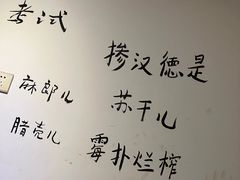 考试
掺汉德是
麻郎儿
苏干儿
腊壳儿
霉扑烂榨